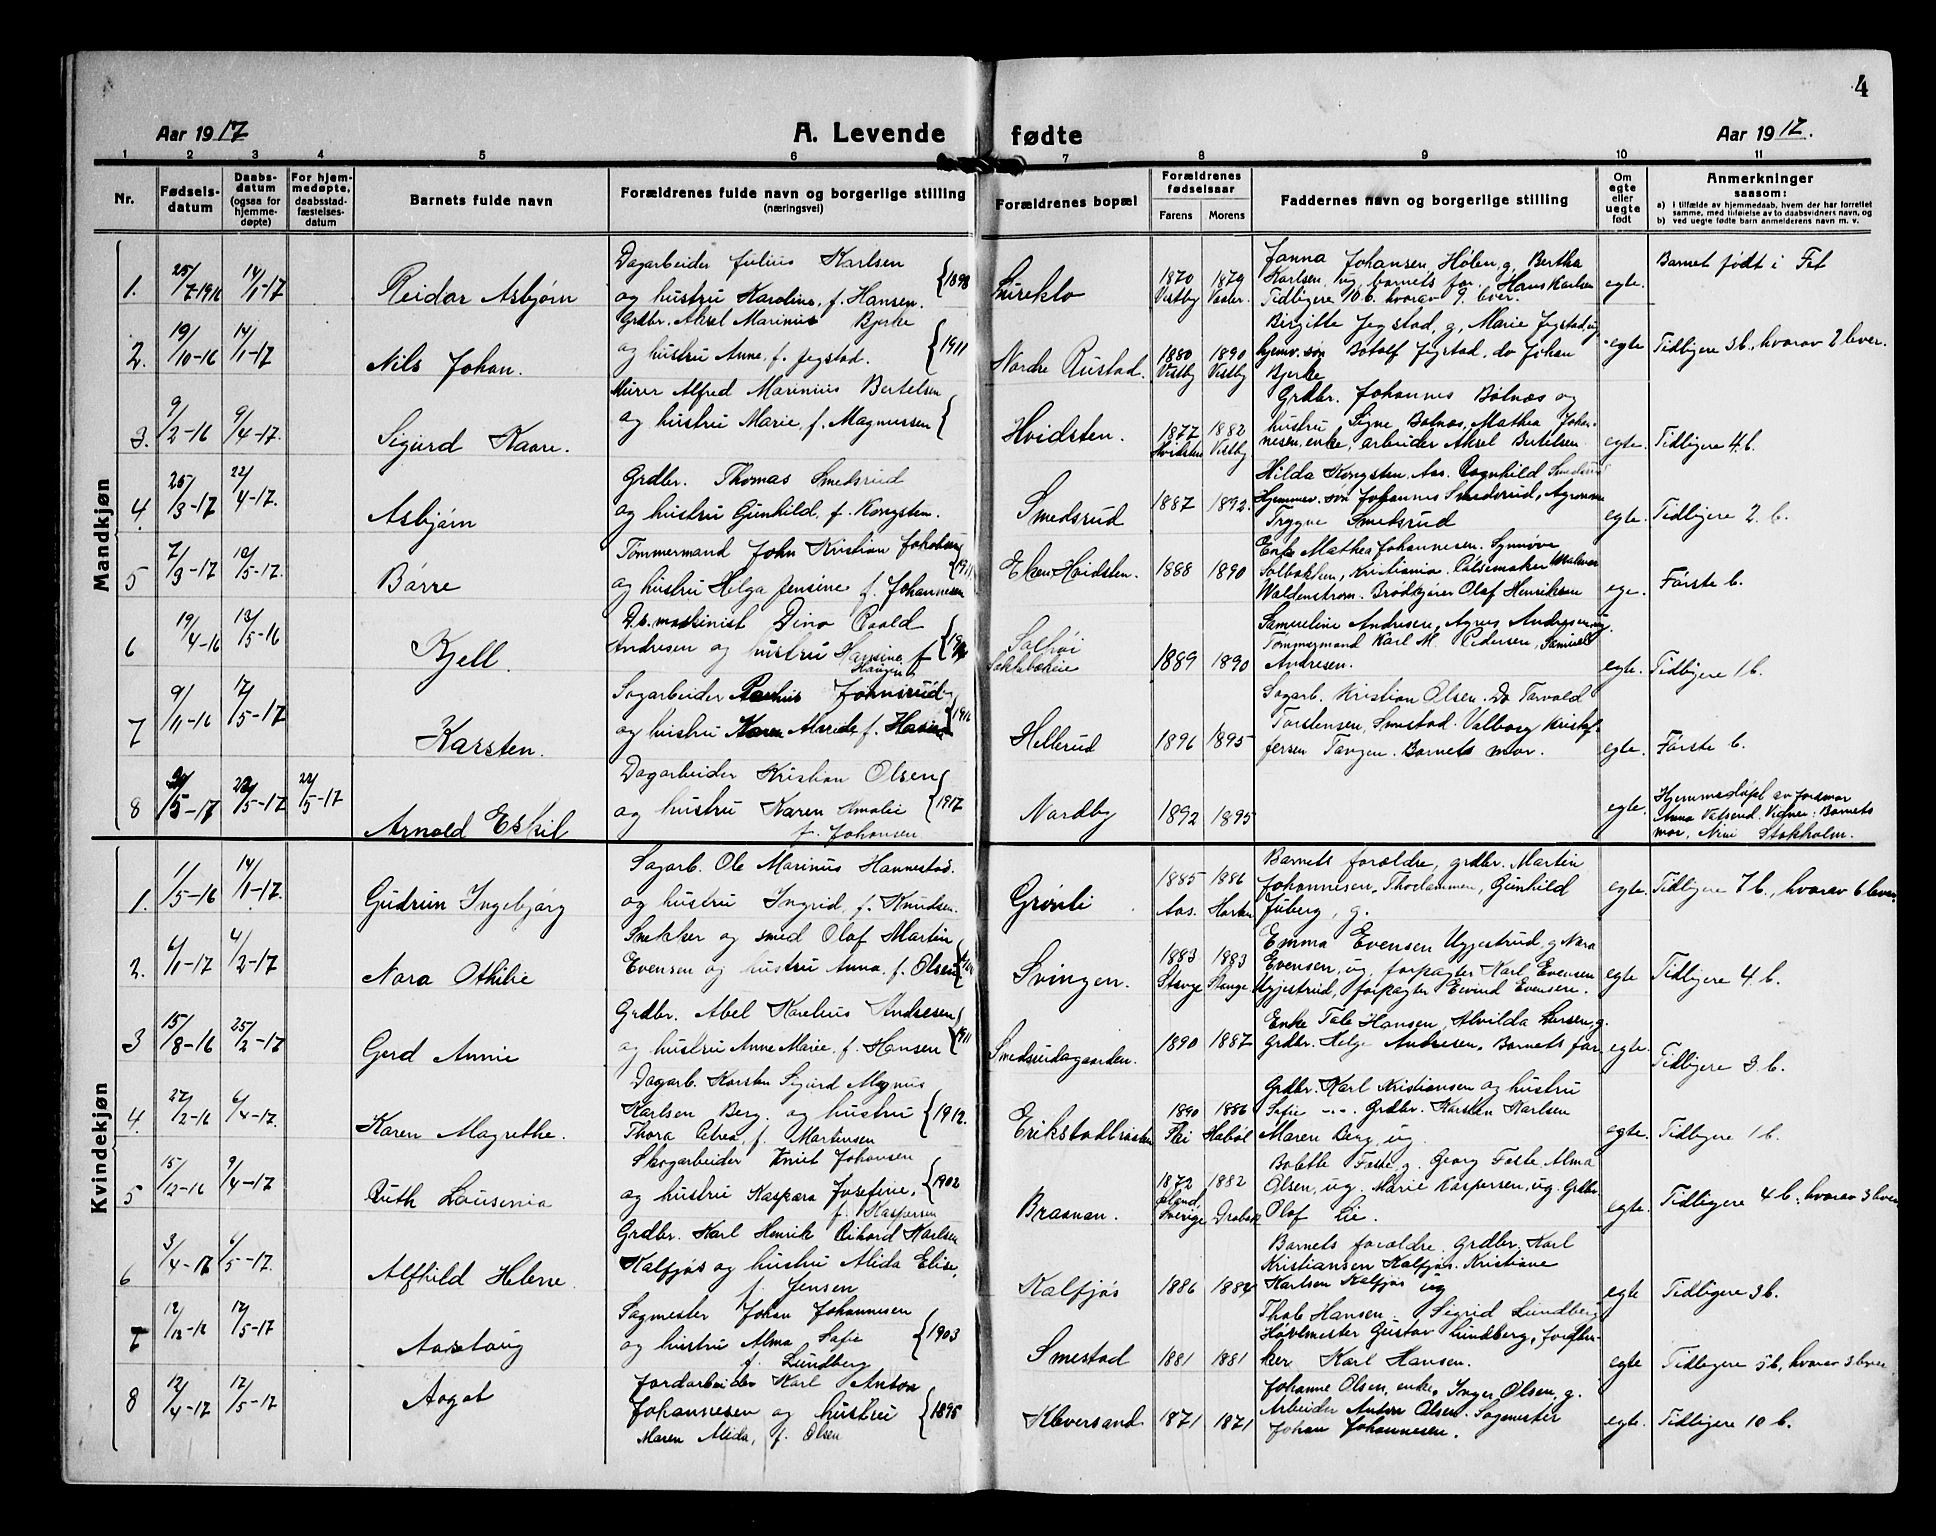 4
Aar 1917
A. Levende fødte
Aar 1917.
1 2 3 4 5 6 7 8 9 10 11
Nr.
Fødselsdatum
Daabsdatum (ogsaa for hjemmedøpte)
For hjemmedøpte, daabsstadfæstelsesdatum
Barnets fulde navn
Forældrenes fulde navn og borgerlige stilling (næringsvei)
Forældrenes bopæl
Forældrenes fødselsaar
Farens Morens
Faddernes navn og borgerlige stilling
Om egte eller uegte født
Anmerkninger saasom:
a) i tilfælde av hjemmedaab, hvem der har forrettet samme, med tilføielse av to daabsvidners navn, og
b) ved uegte fødte barn anmelderens navn m. v.
Mandkjøn
1. 25/7-1916 14/1-17 Reidar Asbjørn
Dagarbeider Julius Karlsen
og hustru Karoline, f. Hansen. {1898
1870 Vestby 1879
Janna Johansen, Hølen, g. Bertha
Karlsen, ug. barnets far, Hans Karlsen
Tidligere 10 b. hvorav 9 lever.
egte.
Barnet født i Fet
2. 19/10-16 14/1-17 Nils Johan.
Grdbr. Aksel Marinius Bjerke
og hustru Anne, f. Jegstad. {1911
Nordre Rustad.
1880 Vestby 1890 Vestby
Birgitte Jegstad, g, Marie Jegstad, ug
hjemv. søn Botolf Jegstad, do Johan
Bjerke
egte
Tidligere 3 b., hvorav 2 lever.
3. 9/2-16 9/4-17. Sigurd Kaare.
Murer Alfred Marinius Bertelsen
og hustru Marie, f. Magnussen {
Hvidsten.
1877 Hvidsten 1882 Vestby
Grdbr. Johannes Bølnæs og
hustru Signe Bølnæs, Mathea Johan-
nesen, enke, arbeider Aksel Bertelsen
egte.
Tidligere 4 b.
4. 25/3-17 22/4-17. Asbjørn
Grdbr. Thomas Smedsrud
og hustru Gunhild, f. Kongsten.
Smedsrud
1887 1892.
Hilda Kongsten Aas. Ragnhild Smedsrud
Hjemmev. søn Johannes Smedsrud, Agronom
Trygve Smedsrud
egte.
Tidligere 2 b.
5 7/3-17 10/5-17. Børre
Tømmermand John Kristian Jakobsen
og hustru Helga Jensine f. Johannesen {1911
Eken Hvidsten.
1888 1890
Enke Mathea Johannesen. Synnøve
Solbakken, Kristiania. Pølsemaker
Waldenstrøm. Brødkjører Olaf Henriksen
ege.
Første b.
6 19/4-16 13/5-16 Kjell.
D.s. maskinist Dino Roald
Andresen og hustru Hansine f. Haugen
1889 1890
Samueline Andresen, Agnes Andresen, ug.
Tømmermand Karl M. Pedersen, Samuel
Andresen.
egte.
Tidligere 1 b.
7 9/11-16 17/5-17 Karsten.
Sagarbeider
og hustru Karen f.
Hellerud
1896 1895
Sagarb. Kristian Olsen. Do Tarvald
Torstensen, Smestad. Valborg Kristof-
fersen Tangen. Barnets mor.
egte.
Første b.
8 5-17 22/5-17 22/5-17 Arnold Eskil
Dagarbeider Kristian Olsen
og hustru Karen Amalie {1917
f. Johansen
Nordby
1892 1895
egte.
Hjemmedøpt av jordmor
Anna Vidner. Barnets
mor, Stokholm.
Kvindekjøn
1. 1/5-16 14/1-17. Gudrun Ingebjørg
Sagarb. Ole Marinus Hannestad.
og hustru Ingrid, f. Knudsen.
Grønli
1885 Aas. 1886
Barnets forældre, grdbr. Martin
Johannesen, Gunhild
Juberg, g.
egte
Tidligere 7 b., hvorav 6 lever.
2. 6/1-17 4/2-17 Nora Othilie
Snekker og smed Olaf Martin
Evensen og hustru Anna, f. Olsen
Svingen.
1883 Stange 1883 Stange
Emma Evensen Uggestrud, g Nora
Evensen, ug, forpagter Karl Evensen
Uggestrud, forpagter Eivind Evensen.
egte
Tidligere 4 b.
3 15/8-16 25/2-17 Gerd Annie
Grdbr. Abel Karelius Andresen
og hustru Anne Marie, f. Hansen {1911
Smedsrudgaarden.
1890 1887
Enke Tale Hansen, Alvilda Larsen, g.
Grdbr. Helge Andresen, Barnets far.
egte.
Tidligere 3 b.
4. 27/12-16 6/4-17. Karen Magrethe.
Dagarb. Karsten Sigurd Magnus
Karlsen Berg. og hustru {1912.
Thora Petrea, f. Martinsen
1890 Ski 1886 Hobøl
Grdbr. Karl Kristiansen og hustru
Sofie –..– Grdbr. Karsten Karlsen
Maren Berg, ug.
egte.
Tidligere 1 b.
5 15/12-16 9/4-17 Ruth Lousenia
Skogarbeider Knut Johansen
og hustru Kaspara Josefine, {1902
f. Kaspersen
Braanan.
1872 Sverige 1882 Drøbak
Bolette Foste, g. Georg Foste, Alma
Olsen, ug. Marie Kaspersen, ug. Grdbr.
Olaf Lie.
egte.
Tidligere 4 b., hvorav 3 lever
6 3/4-17 6/5-17. Alfhild Helene
Grdbr. Karl Henrik Rikard Karlsen
Kalfjøs og hustru Alida Elise,
f. Jensen
Kalfjøs
1886 1884
Barnets forældre. Grdbr. Karl
Kristiansen Kalfjøs. Kristiane
Karlsen Kalfjøs ug
egte
Tidligere 3 b.
7 12/12-16 17/5-17 Aaslaug
Sagmester Johan Johannesen
og hustru Alma Sofie {1903
f. Lundberg
Smestad
1881 1881
Thale Hansen, Sigrid Lundberg
Høvlmester Gustav Lundberg,
Karl Hansen.
egte
Tidligere 5 b, hvorav 3 lever
8 12/4-17 17/5-17 Aagot
Jordarbeider Karl Anton
Johannesen og hustru {1895
Maren Alida, f. Olsen
Kleversand
1871 1871
Johanne Olsen, enke, Inger Olsen, g.
Arbeider Anton Olsen. Sagmester
Johan Johannesen.
egte.
Tidligere 10 b.